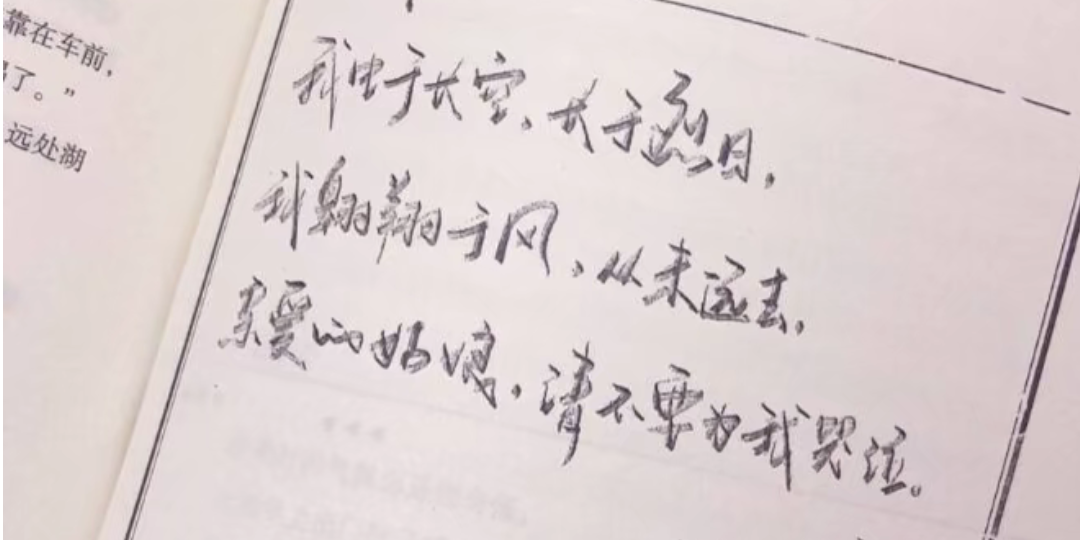 靠在车前，
了。”
远处湖
我生于长空，长于烈日，
我翱翔于风，从未远去。
亲爱的姑娘，请不要为我哭泣。